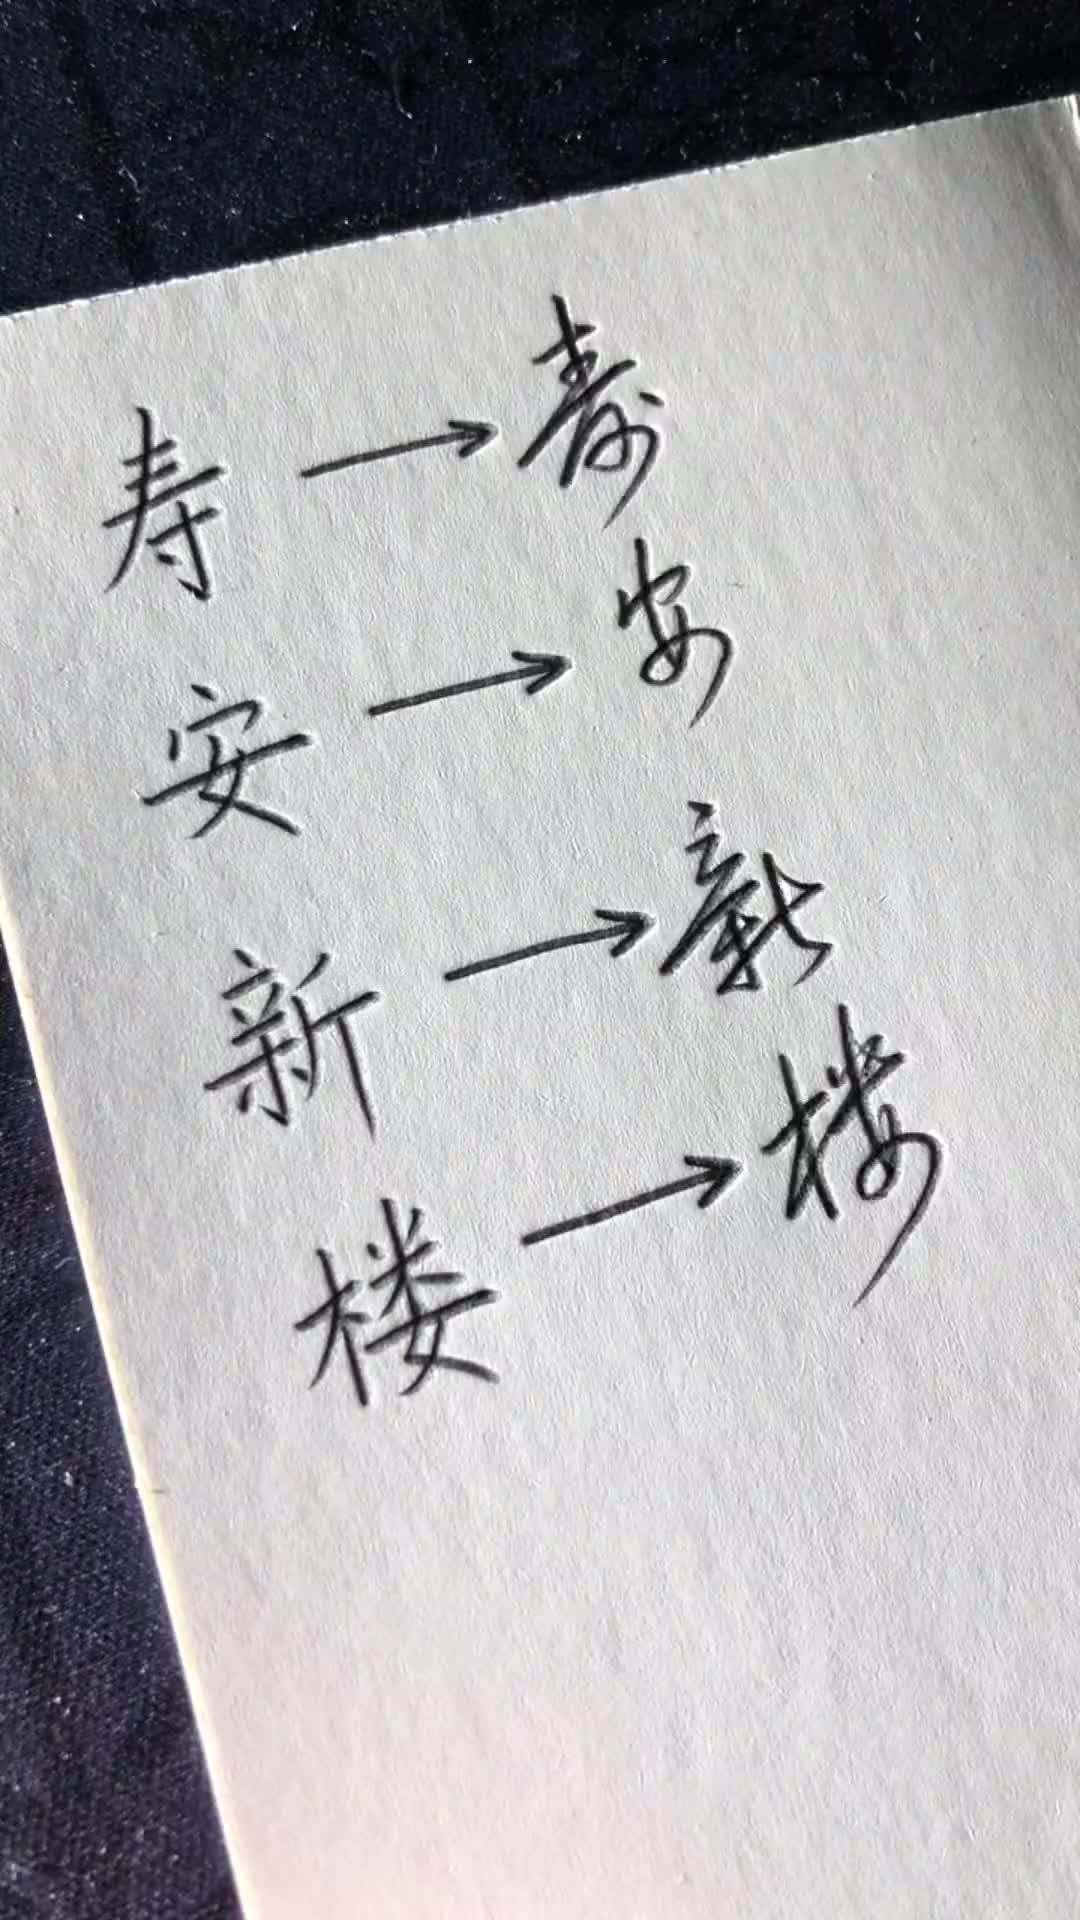 寿→寿
安→安
新→新
楼→楼